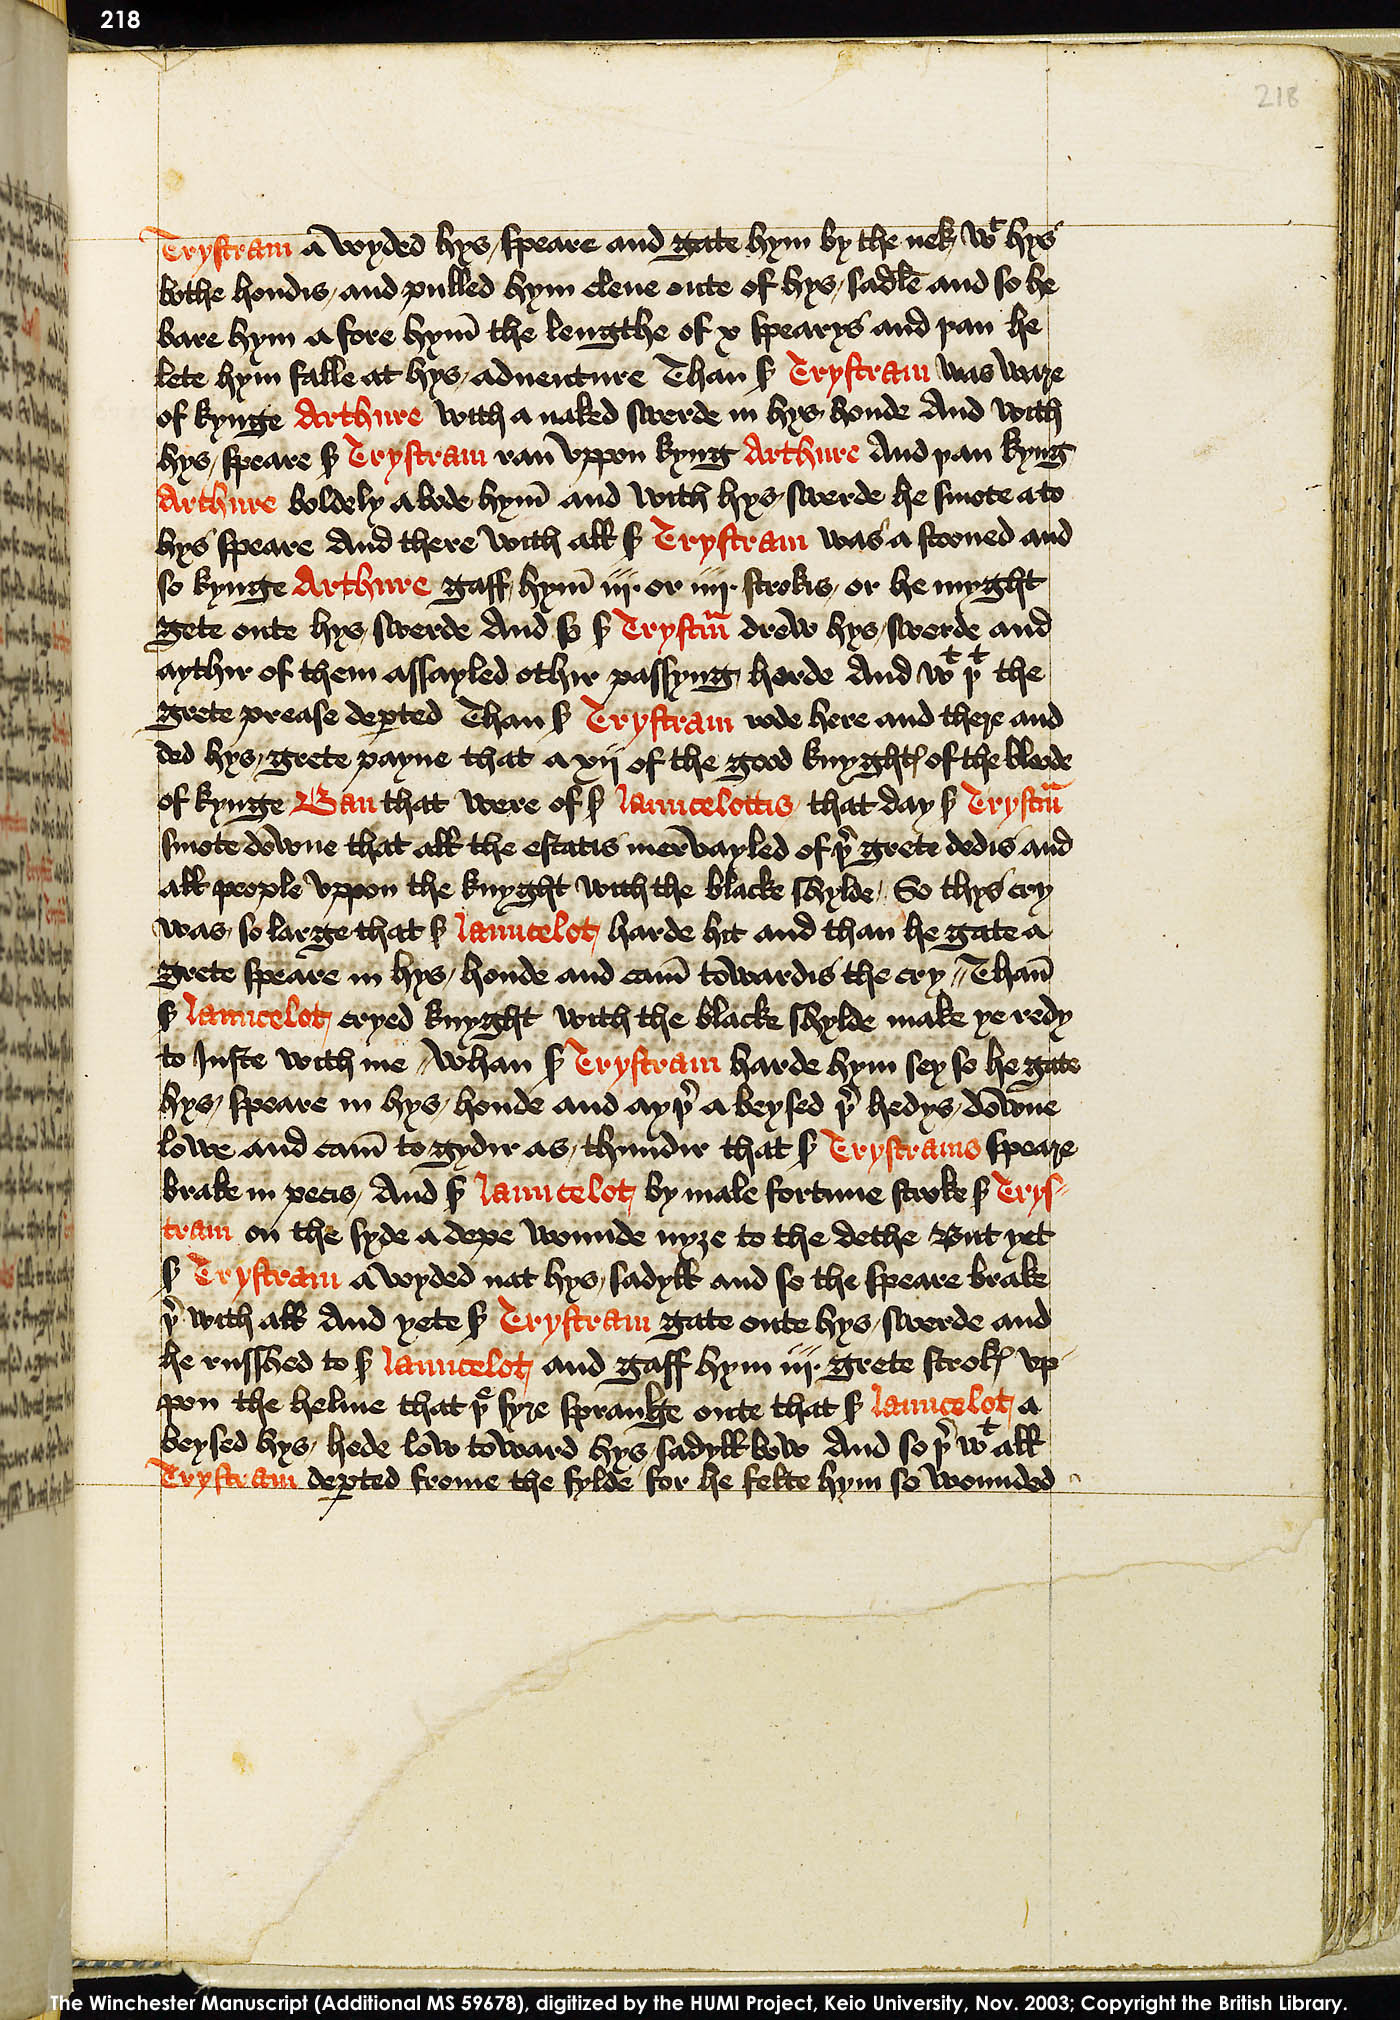 218
218
Trystram a voyded hys speare and gate hym by the nek wt hys
bothe hondis and pulled hym clene oute of hys sadle and so he
bare hym a fore hym̄ the lengthe of x spearys and þan he
lete hym falle at hys adventure Than sʳ Trystram was ware
of kynge Arthure with a naked swerde in hys honde And with
hys speare sʳ Trystram ran vppon kyng Arthure And þan kyng
Arthure boldely a bode hym̄ and with hys swerde he smote a to
hys speare And there with all sʳ Trystram was a stooned and
so kynge Arthure gaff hym̄ iij or iiij strokis or he myght
gete oute hys swerde And so sʳ Trystrm̄ drew hys swerde and
aythir of them assayled othir passyng harde And wt þt the
grete prease deꝑted Than sʳ Trystram rode here and there and
ded hys grete payne that a xij of the good knyghtꝭ of the bloode
of kynge Ban that were of sʳ launcelottis that day sʳ Trystrm̄
smote downe that all the estatis mervayled of þʳ grete dedis and
all people vppon the knyght with the blacke shylde So thys cry
was so large that sʳ launcelot harde hit and than he gate a
grete speare in hys honde and cam̄ towardis the cry // Than̄
sʳ launcelot cryed knyght with the blacke shylde make ye redy
to Juste with me // Whan sʳ Trystram harde hym sey so he gate
hys speare in hys honde and ayþʳ a beysed þʳ hedys downe
lowe and cam̄ to gydir as thundir that sʳ Trystrams speare
brake in pecis And sʳ launcelot by male fortune stroke sʳ Trys//
tram on the syde a depe wounde nyze to the dethe But yet
sʳ Trystram a voyded nat hys sadyll and so the speare brake
þʳ with all And yete sʳ Trystram gate oute hys swerde and
he russhed to sʳ launcelot and gaff hym iij grete strokꝭ vp//
pon the helme that þe fyre spranke oute that sʳ launcelot a
beysed hys hede low toward hys sadyll bow And so þʳ wt all
Trystram deꝑted frome the fylde for he felte hym so wounded
The Winchester Manuscript (Additional MS 59678), digitized by the HUMI Project, Keio University, Nov. 2003; Copyright the British Library.